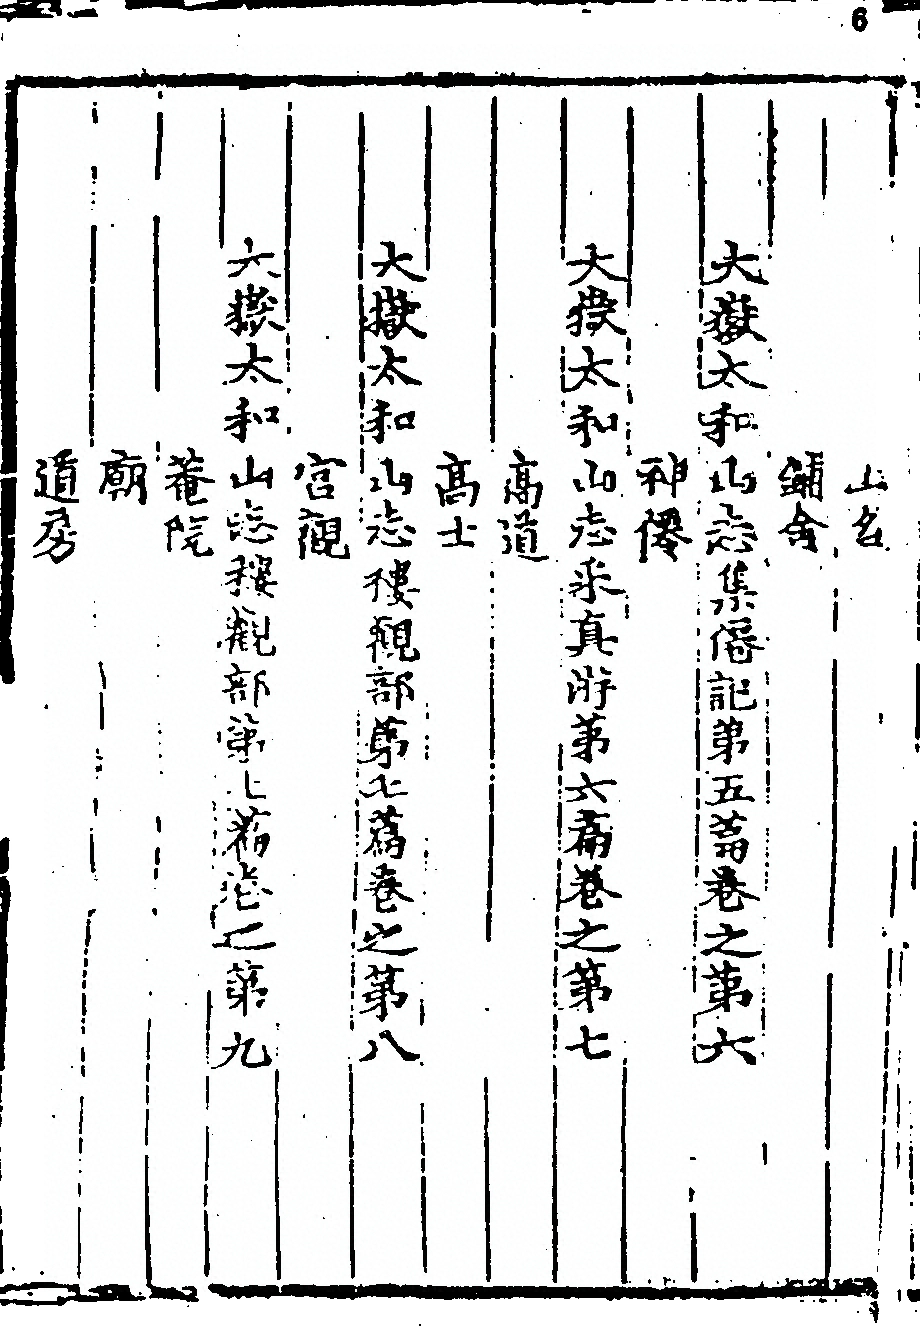 6
山名
鋪舍
大嶽太和山志集僊記第五篇卷之第六
神僊
大嶽太和山志采真游第六篇卷之第七
高道
高士
大嶽太和山志樓觀部第七篇卷之第八
宮觀
大嶽太和山志樓觀部第七篇卷之第九
菴院
廟
道房